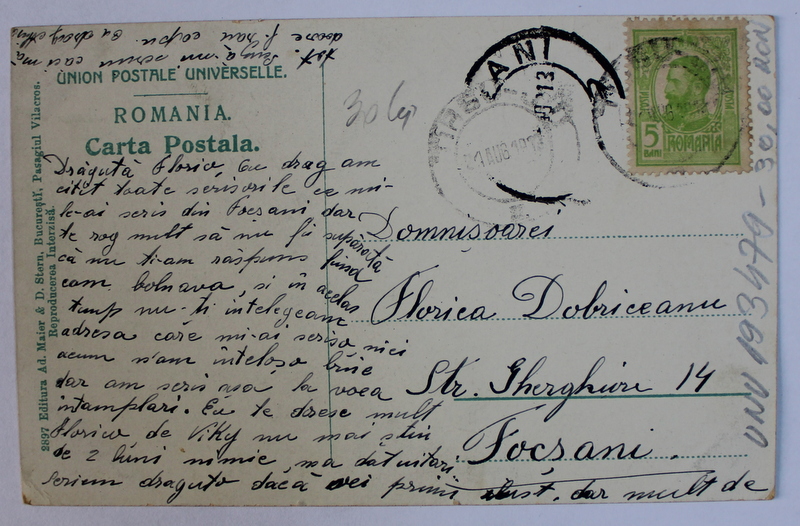 UNION POSTALE UNIVERSELLE.
ROMANIA.
Carta Postala.
2897 Editura Ad. Maier & D. Stern, Bucureștĭ, Pasagiul Vilacros.
Reproducerea Interzisă.
30 lei
Drăguță Florico, Cu drag am
citit toate scrisorile ce mi-
le-ai scris din Focsani dar
te rog mult să nu fi supărată
că nu ti-am răspuns fiind
cam bolnava, si în acelas
timp nu-ti intelegeam
adresa care mi-ai scris-o nici
acum n'am înteles-o bine
dar am scris asa la voea
intamplari. Eu te doresc mult
Florico de Viky nu mai stiu
de 2 luni nimic, m'a dat uitari.
Scriem draguto dacă vei primi dar mult de
Domnișoarei
Florica Dobriceanu
Str. Gherghiu 14
Focșani.
5 BANI
ROMANIA
21 AUG 1913
UNU 193479 - 30,00 RON